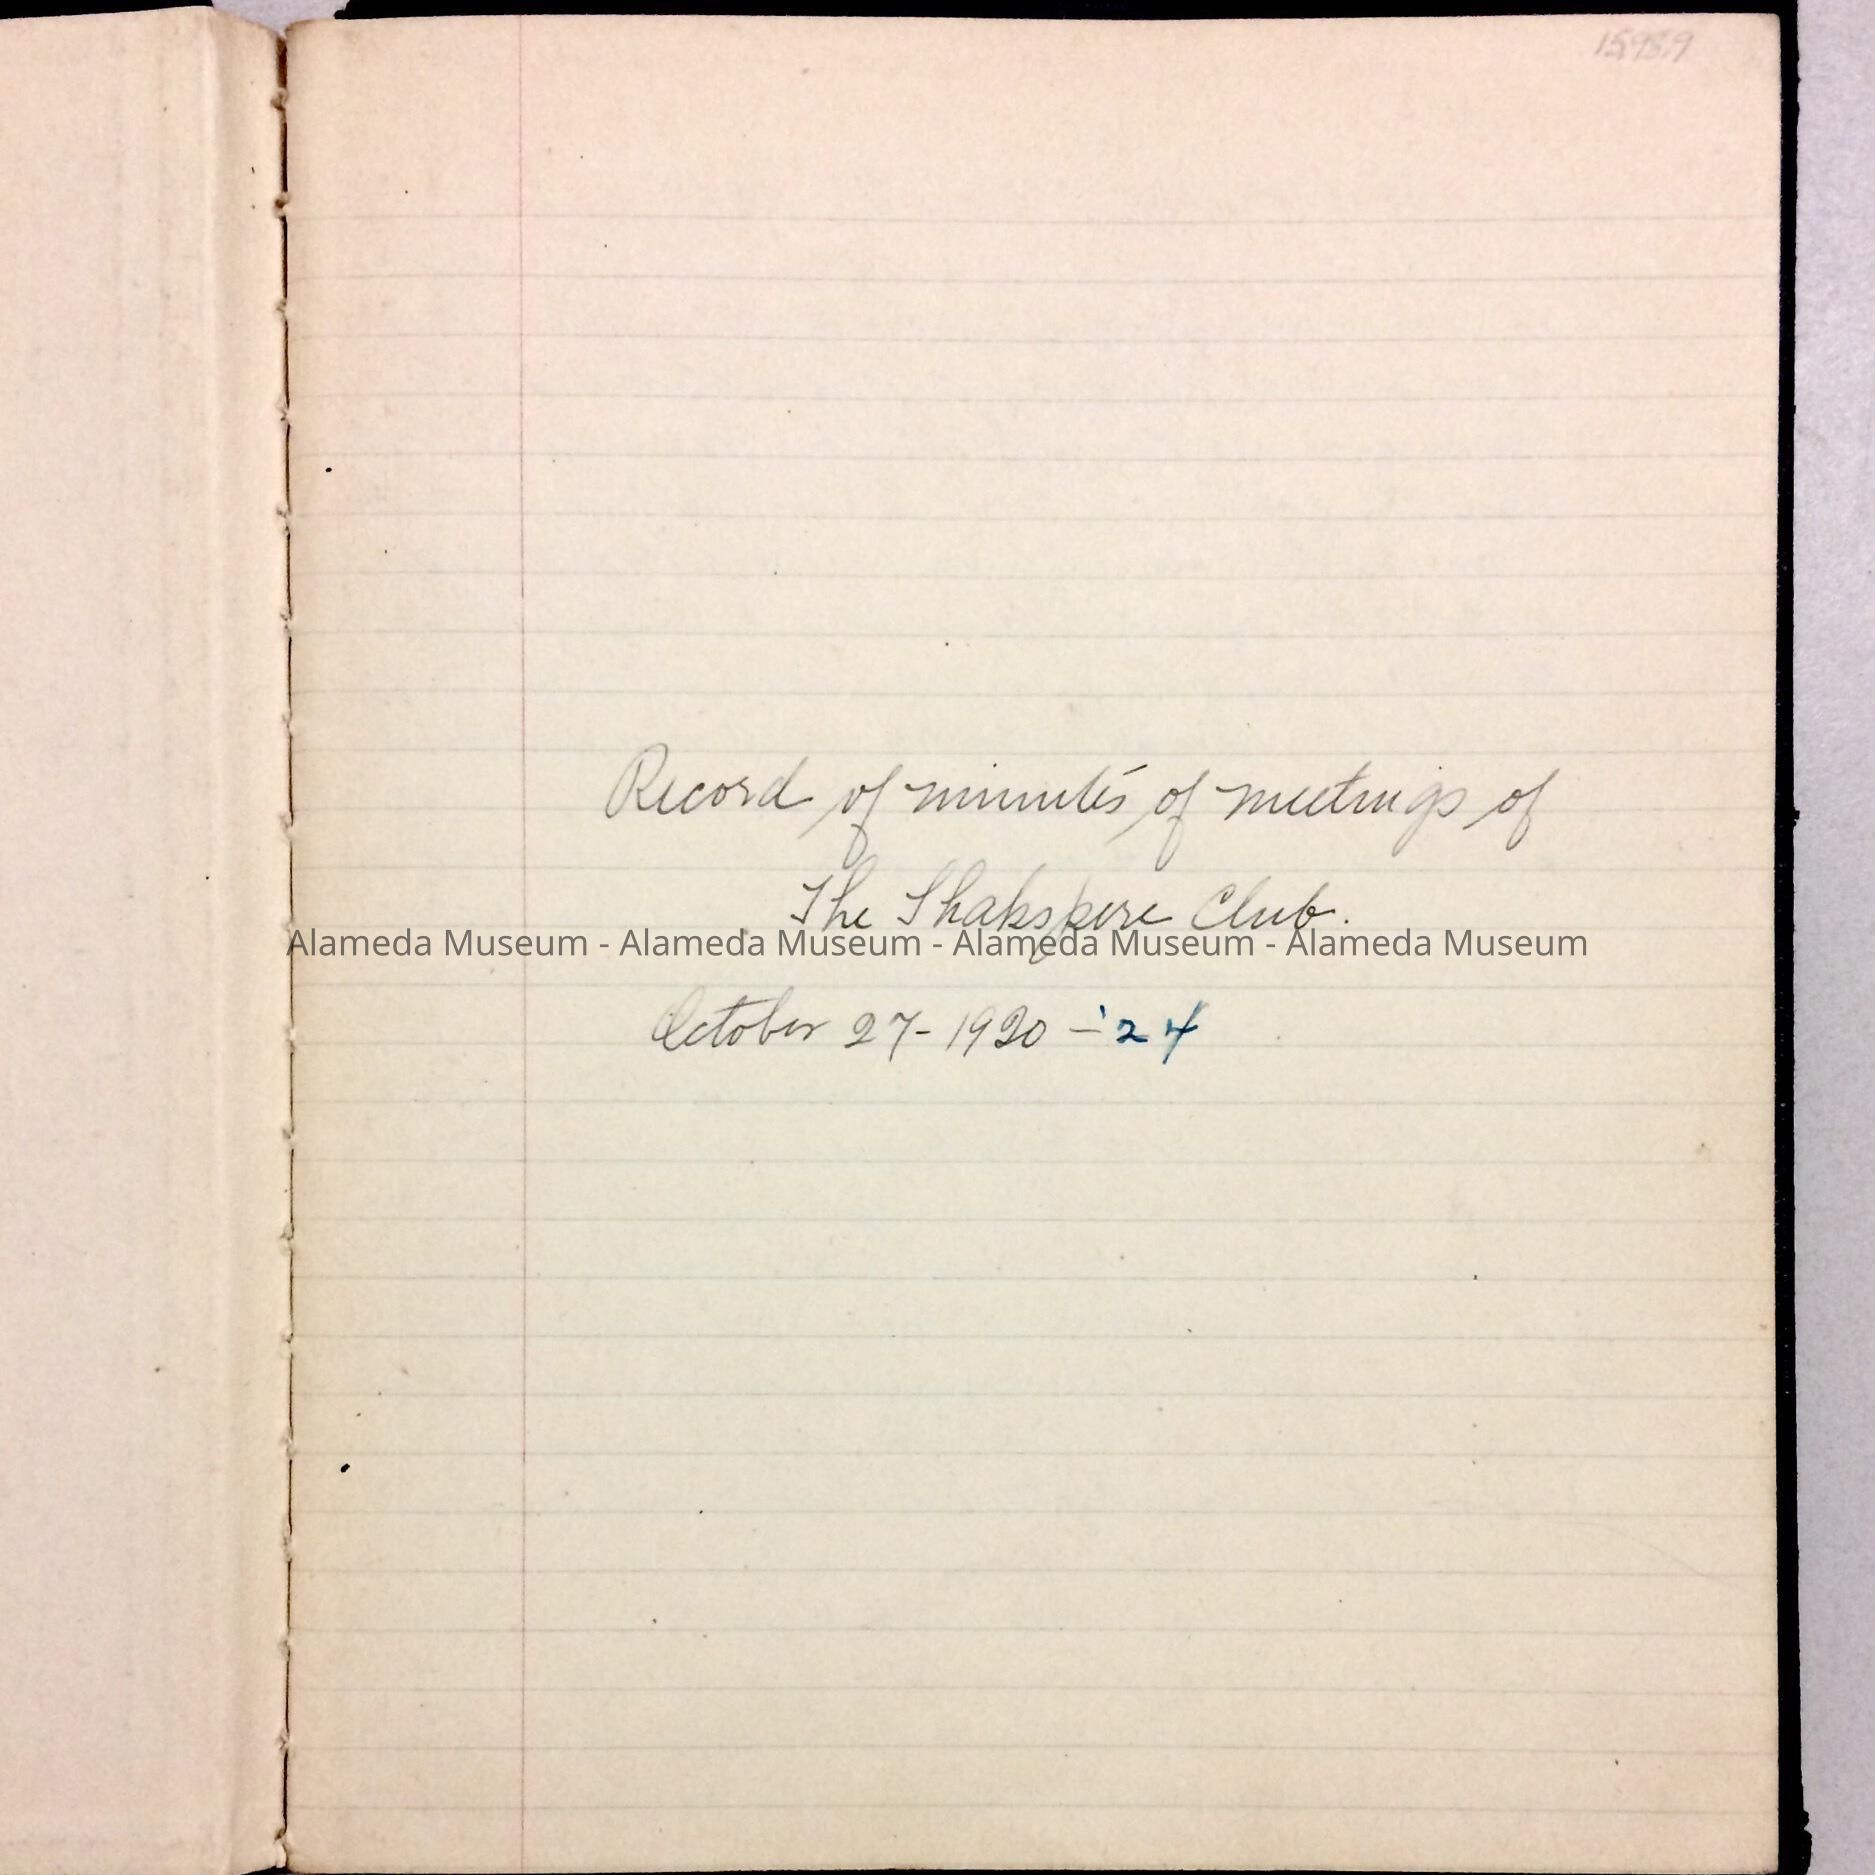 Record of minutes of meetings of
The Shakspere Club.
Alameda Museum - Alameda Museum - Alameda Museum - Alameda Museum
October 27-1920 - '24